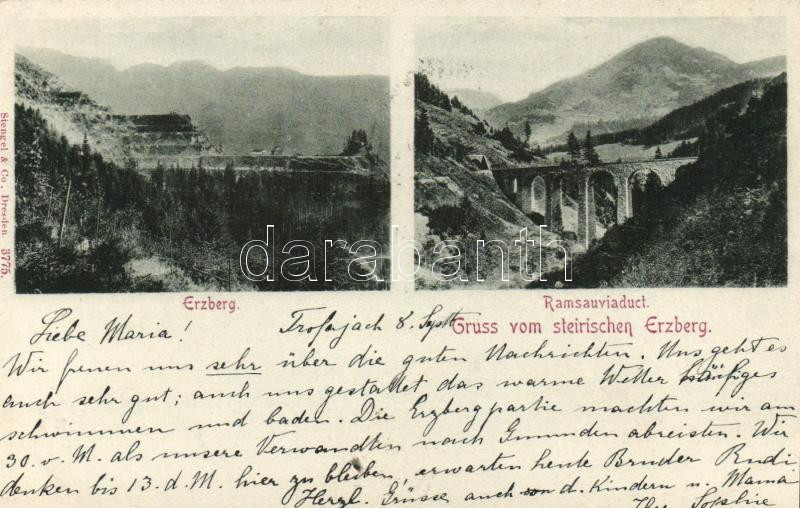 Stengel & Co., Dresden 3775.
darabanth.com
Erzberg.
Ramsauviaduct.
Gruss vom steirischen Erzberg.
Liebe Maria! Trofajach 8. Sept
Wir freuen uns sehr über die guten Nachrichten. Uns geht es
auch sehr gut; auch uns gestattet das warme Wetter häufiges
schwimmen und baden. Die Erzbergpartie machten wir am
30. v. M. als unsere Verwandten nach Gmunden abreisten. Wir
denken bis 13. d. M. hier zu bleiben, erwarten heute Bruder Rudi
Herzl. Grüsse auch von d. Kindern u. Mama
Ihre Sophie